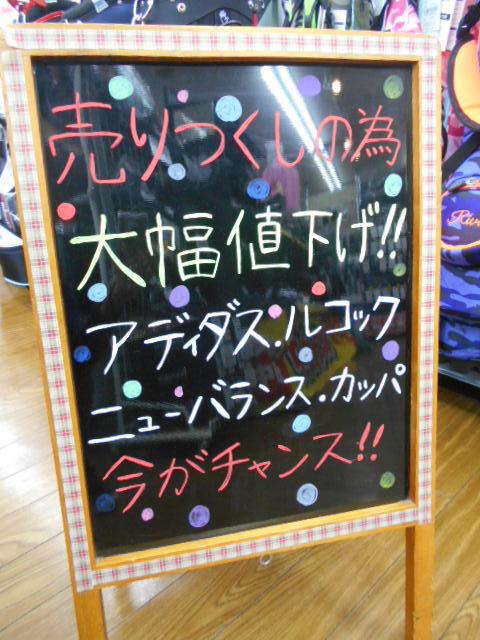 売りつくしの為
大幅値下げ!!
アディダス・ルコック
ニューバランス・カッパ
今がチャンス!!